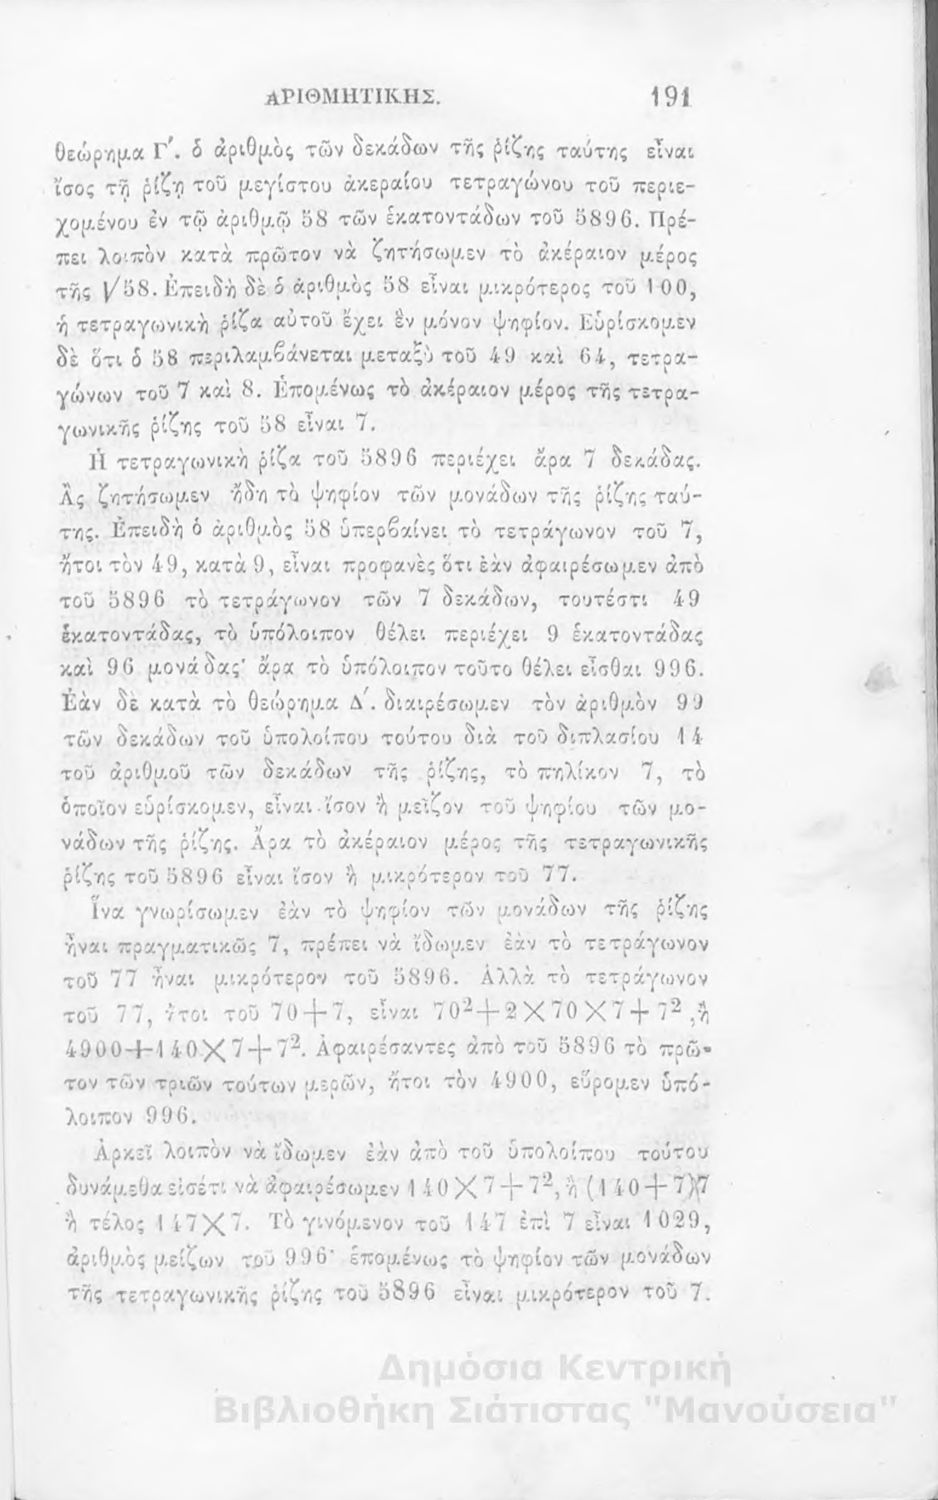 ΑΡΙΘΜΗΤΙΚΗΣ. 191
θεώρημα Γ΄. ὁ ἀριθμὸς τῶν δεκάδων τῆς ῥίζης ταύτης εἶναι
ἴσος τῇ ῥίζῃ τοῦ μεγίστου ἀκεραίου τετραγώνου τοῦ περιε-
χομένου ἐν τῷ ἀριθμῷ 58 τῶν ἑκατοντάδων τοῦ 5896. Πρέ-
πει λοιπὸν κατὰ πρῶτον νὰ ζητήσωμεν τὸ ἀκέραιον μέρος
τῆς √58. Ἐπειδὴ δὲ ὁ ἀριθμὸς 58 εἶναι μικρότερος τοῦ 100,
ἡ τετραγωνικὴ ῥίζα αὐτοῦ ἔχει ἓν μόνον ψηφίον. Εὑρίσκομεν
δὲ ὅτι ὁ 58 περιλαμβάνεται μεταξὺ τοῦ 49 καὶ 64, τετρα-
γώνων τοῦ 7 καὶ 8. Ἑπομένως τὸ ἀκέραιον μέρος τῆς τετρα-
γωνικῆς ῥίζης τοῦ 58 εἶναι 7.
Ἡ τετραγωνικὴ ῥίζα τοῦ 5896 περιέχει ἄρα 7 δεκάδας.
Ἂς ζητήσωμεν ἤδη τὸ ψηφίον τῶν μονάδων τῆς ῥίζης ταύ-
της. Ἐπειδὴ ὁ ἀριθμὸς 58 ὑπερβαίνει τὸ τετράγωνον τοῦ 7,
ἤτοι τὸν 49, κατὰ 9, εἶναι προφανὲς ὅτι ἐὰν ἀφαιρέσωμεν ἀπὸ
τοῦ 5896 τὸ τετράγωνον τῶν 7 δεκάδων, τουτέστι 49
ἑκατοντάδας, τὸ ὑπόλοιπον θέλει περιέχει 9 ἑκατοντάδας
καὶ 96 μονάδας· ἄρα τὸ ὑπόλοιπον τοῦτο θέλει εἶσθαι 996.
Ἐὰν δὲ κατὰ τὸ θεώρημα Δ΄. διαιρέσωμεν τὸν ἀριθμὸν 99
τῶν δεκάδων τοῦ ὑπολοίπου τούτου διὰ τοῦ διπλασίου 14
τοῦ ἀριθμοῦ τῶν δεκάδων τῆς ῥίζης, τὸ πηλίκον 7, τὸ
ὁποῖον εὑρίσκομεν, εἶναι ἴσον ἢ μεῖζον τοῦ ψηφίου τῶν μο-
νάδων τῆς ῥίζης. Ἄρα τὸ ἀκέραιον μέρος τῆς τετραγωνικῆς
ῥίζης τοῦ 5896 εἶναι ἴσον ἢ μικρότερον τοῦ 77.
Ἵνα γνωρίσωμεν ἐὰν τὸ ψηφίον τῶν μονάδων τῆς ῥίζης
ἦναι πραγματικῶς 7, πρέπει νὰ ἴδωμεν ἐὰν τὸ τετράγωνον
τοῦ 77 ἦναι μικρότερον τοῦ 5896. Ἀλλὰ τὸ τετράγωνον
τοῦ 77, ἤτοι τοῦ 70+7, εἶναι 70²+2×70×7+7², ἢ
4900+140×7+7². Ἀφαιρέσαντες ἀπὸ τοῦ 5896 τὸ πρῶ-
τον τῶν τριῶν τούτων μερῶν, ἤτοι τὸν 4900, εὕρομεν ὑπό-
λοιπον 996.
Ἀρκεῖ λοιπὸν νὰ ἴδωμεν ἐὰν ἀπὸ τοῦ ὑπολοίπου τούτου
δυνάμεθα εἰσέτι νὰ ἀφαιρέσωμεν 140×7+7², ἢ (140+7)×7
ἢ τέλος 147×7. Τὸ γινόμενον τοῦ 147 ἐπὶ 7 εἶναι 1029,
ἀριθμὸς μείζων τοῦ 996· ἑπομένως τὸ ψηφίον τῶν μονάδων
τῆς τετραγωνικῆς ῥίζης τοῦ 5896 εἶναι μικρότερον τοῦ 7.
Δημόσια Κεντρική
Βιβλιοθήκη Σιάτιστας "Μανούσεια"